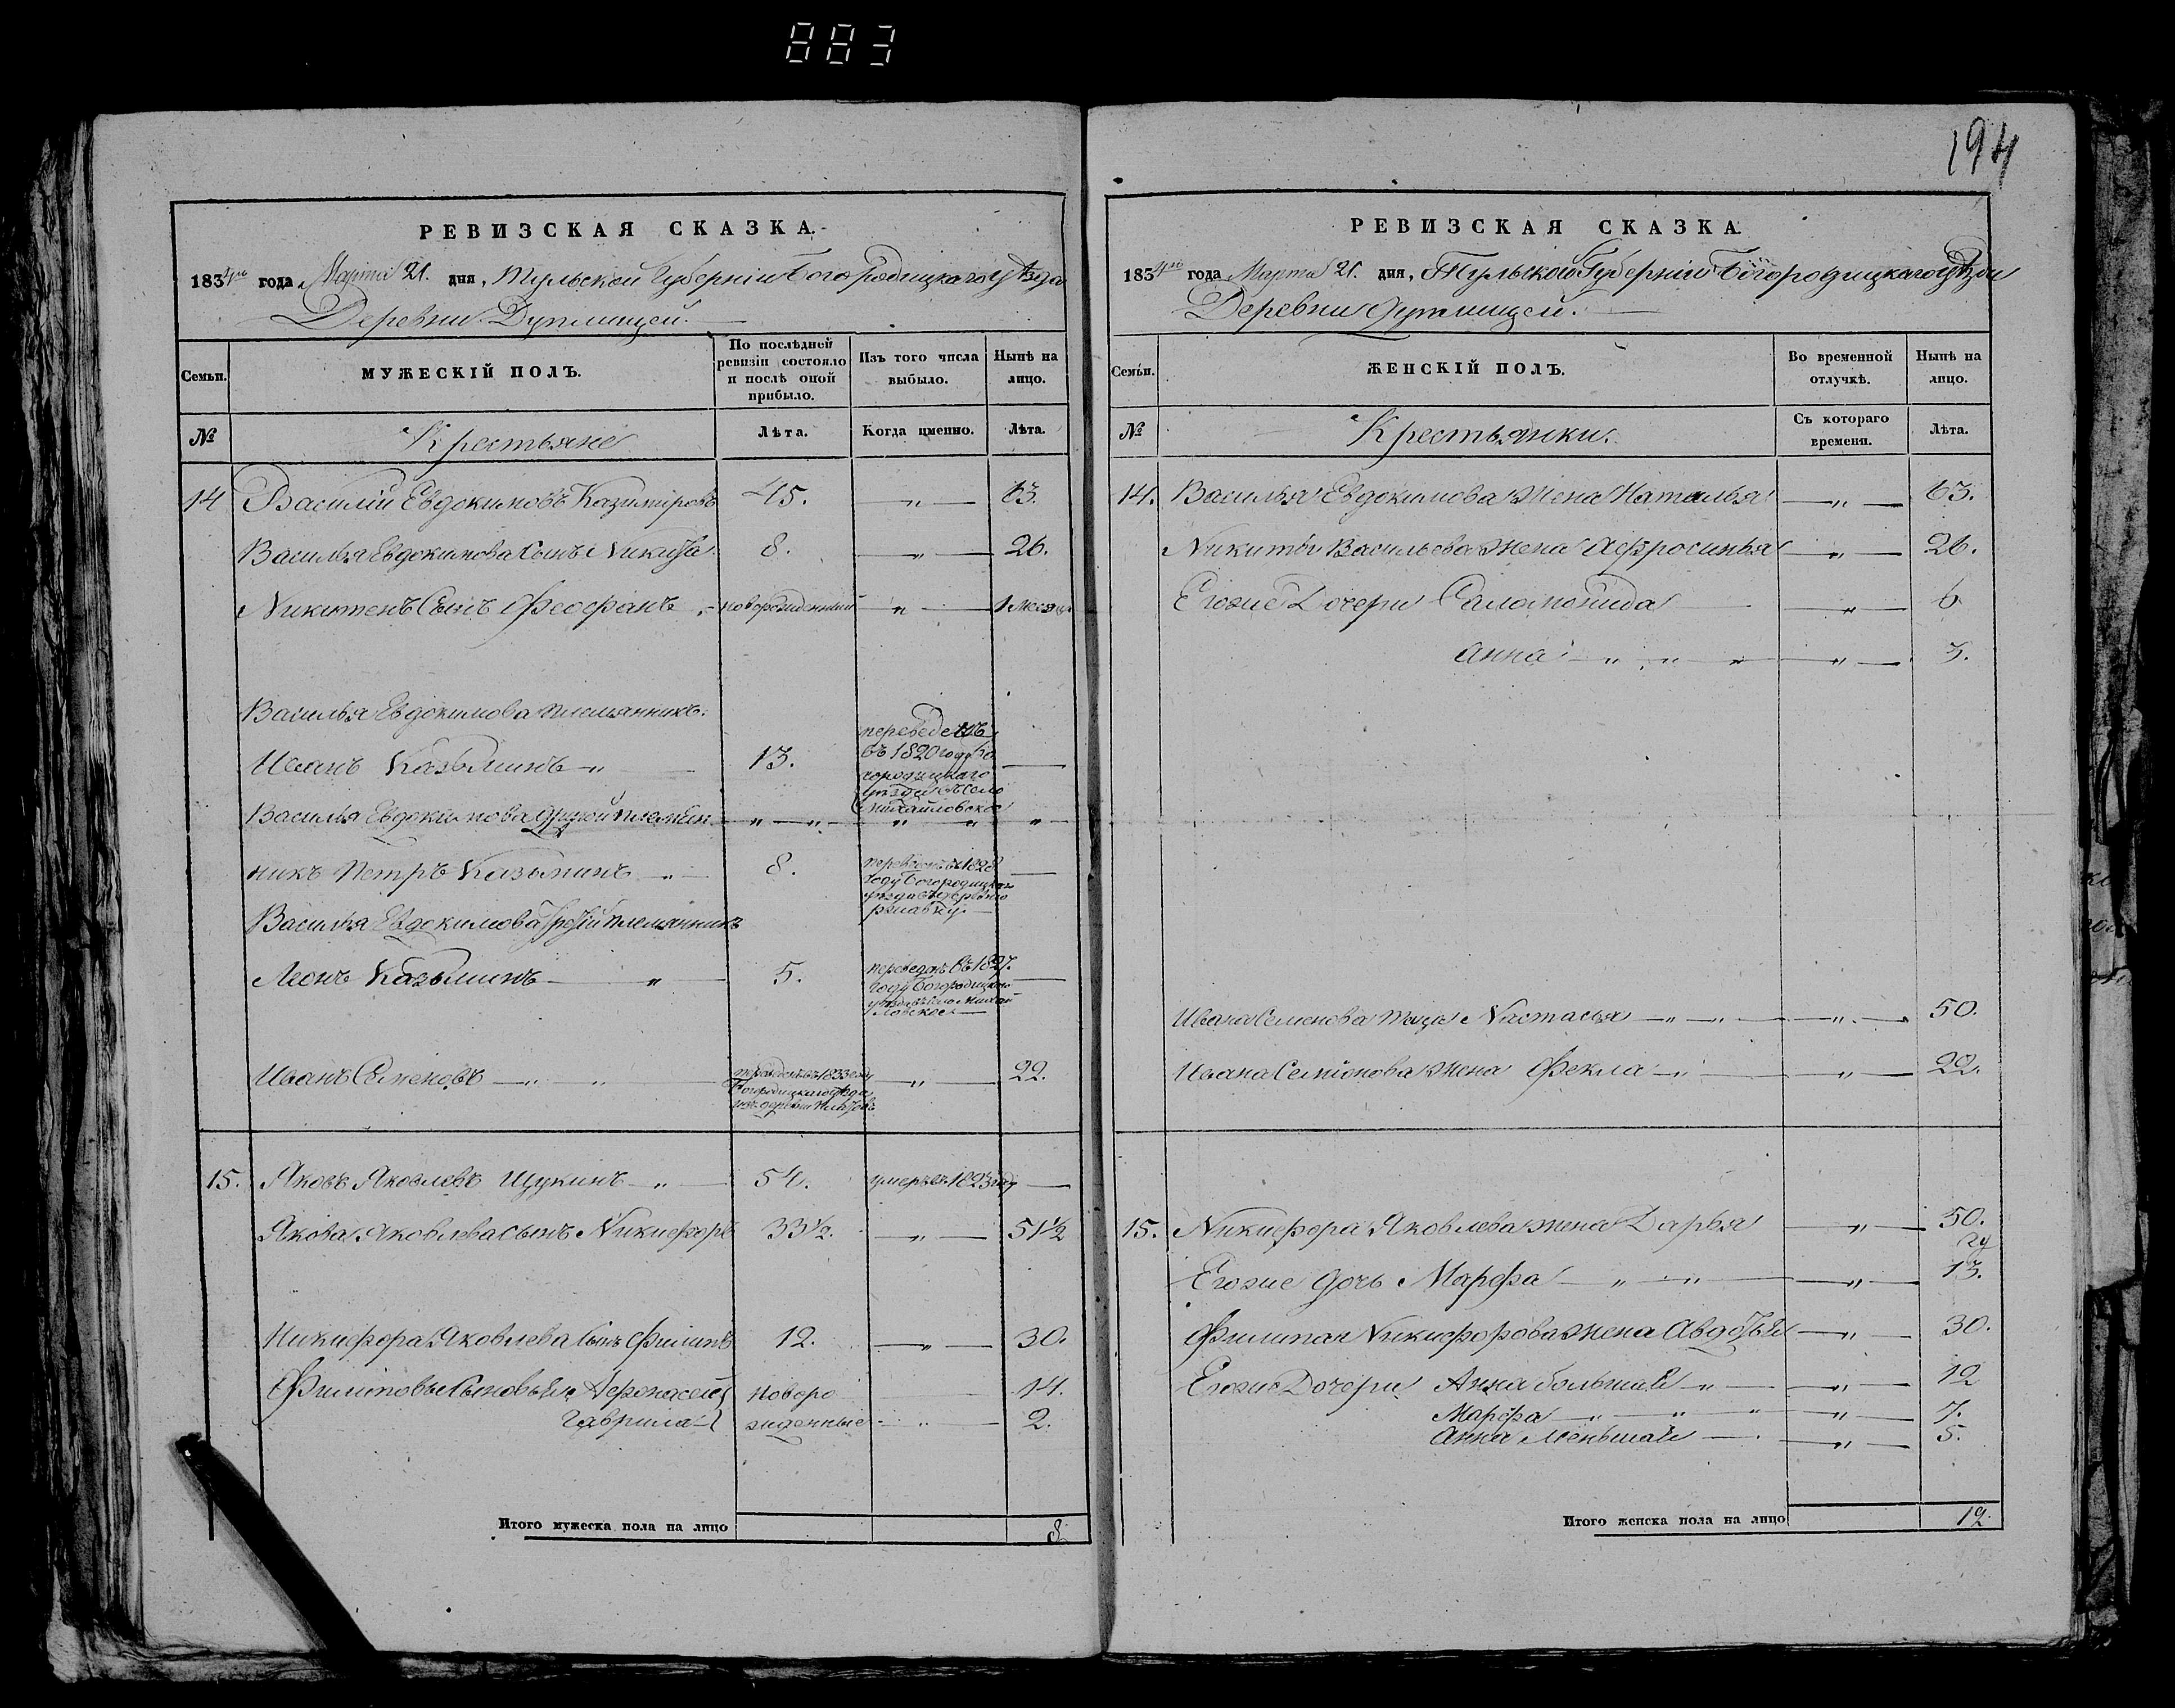 883
194
РЕВИЗСКАЯ СКАЗКА.
1834го года Марта 21. дня, Тульской Губерніи Богородицкаго уѣзда
Деревни
Семьи.
МУЖЕСКІЙ ПОЛЪ.
По послѣдней
ревизіи состояло
и послѣ оной
прибыло.
Изъ того числа
выбыло.
Нынѣ на
лицо.
№
Крестьяне
Лѣта.
Когда именно.
Лѣта.
14 Василій Евдокимовъ Казимировъ 45. " 63.
Василья Евдокимова Сынъ Никита 8. " 26.
Никитенъ Сынъ Феофанъ новорожденный " 1 месяц
Василья Евдокимова племянникъ.
Иванъ Казьминъ " 13.
переведенъ
въ 1820 году Бо
городицкаго
уѣзда въ Село
Михайловское
Василья Евдокимова другой племян
никъ Петръ Казьминъ " 8.
переведенъ в 1828
году Богородицкаго
уѣзда въ
Василья Евдокимова третій племянникъ
Леонъ Казьминъ " 5.
переведенъ въ 1827.
году Богородицкаго
уѣзда въ село Михай
ловское
Иванъ Семеновъ " " " 22.
въ 1833 году
Богородицкаго уѣзда
изъ деревни
15. Яковъ Яковлевъ Щукинъ " 54. умеръ въ 1823 году
Якова Яковлева сынъ Никифоръ 33½. " 51½
Никифора Яковлева Сынъ Филипъ 12. " 30.
Филиповы Сыновья Афонасей новоро 14.
Гаврила жденные " 2.
Итого мужеска пола на лицо 8.
РЕВИЗСКАЯ СКАЗКА.
1834го года Марта 21. дня, Тульской Губерніи Богородицкаго уѣзда
Деревни
Семьи.
ЖЕНСКІЙ ПОЛЪ.
Во временной
отлучкѣ.
Нынѣ на
лицо.
№
Крестьянки.
Съ котораго
времени.
Лѣта.
14. Василья Евдокимова жена Наталья " 63.
Никиты Васильева жена Афросинья " 26.
Егоже Дочери Саломонида " 6
Анна " " " " 3.
Ивана Семенова теща Настасья " " " 50.
Ивана Семіонова жена Фекла " " 22.
15. Никифора Яковлева жена Дарья " 50.
Егоже дочь Марфа " " " 13.
Филипа Никифорова жена Авдотья " 30.
Егоже Дочери Анна большая " " 12
Марфа " " " " 7.
Анна меньшая " 5.
Итого женска пола на лицо 12.